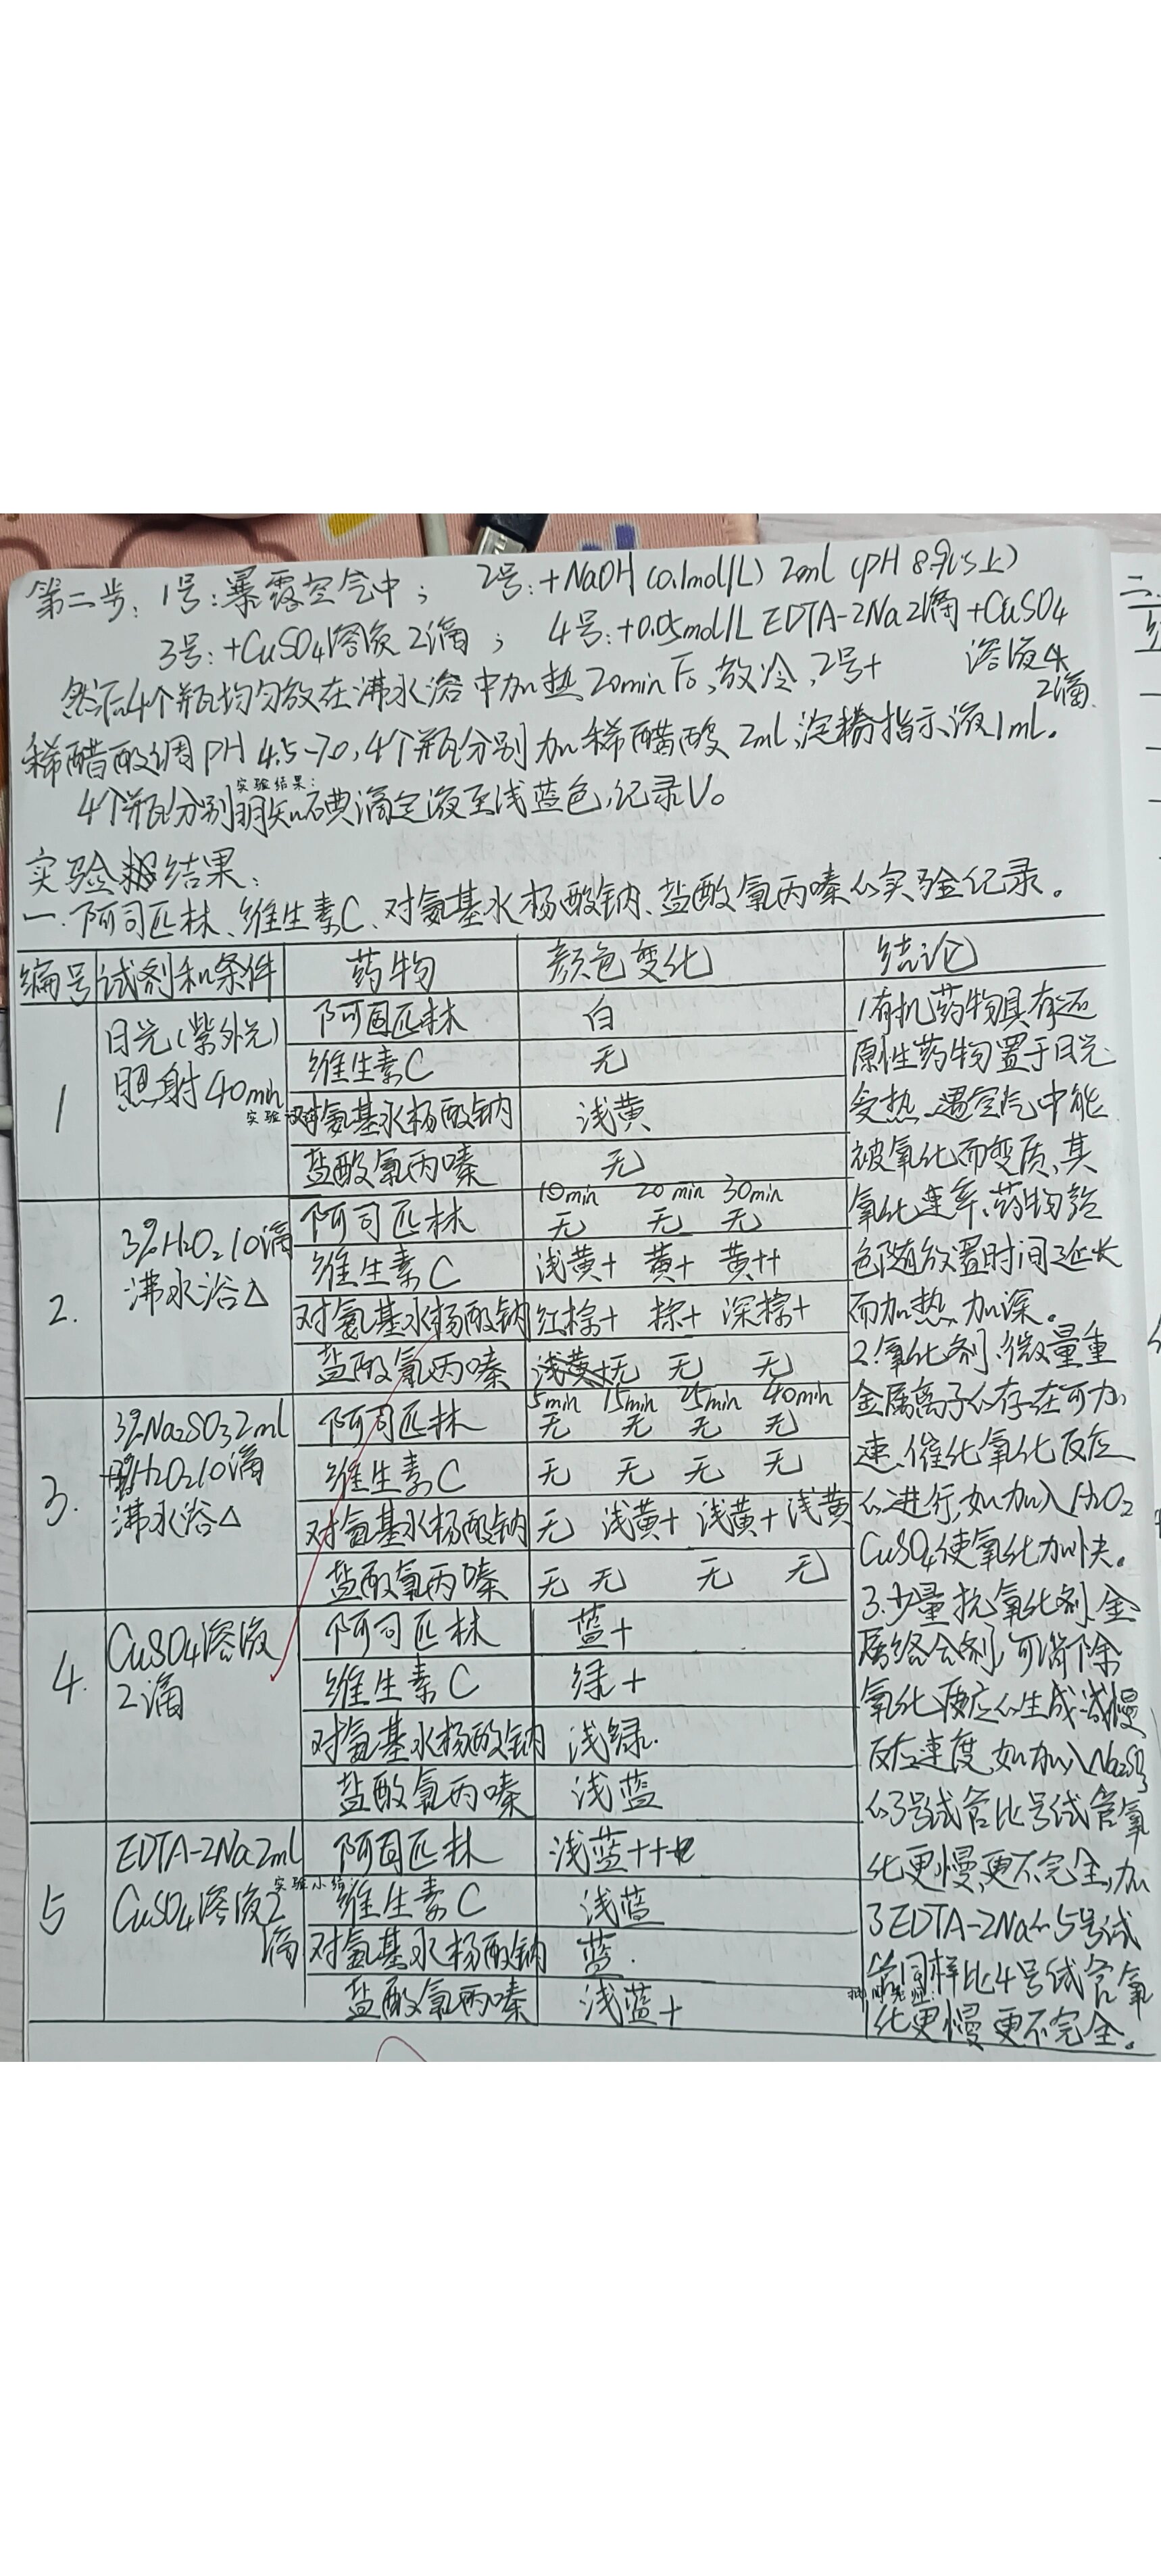 第二步：1号：暴露空气中； 2号：+NaOH(0.1mol/L) 2ml (pH 8.9以上)
3号：+CuSO4溶液2滴； 4号：+0.05mol/L EDTA-2Na 2滴+CuSO4
溶液
2滴.
然后4个瓶均匀放在沸水浴中加热20min后,放冷,2号+
稀醋酸调pH 4.5-7.0,4个瓶分别加稀醋酸2ml,淀粉指示液1mL。
实验结果：
4个瓶分别 碘滴定液至浅蓝色,记录V。
实验 结果：
一.阿司匹林、维生素C、对氨基水杨酸钠、盐酸氯丙嗪 实验记录。
编号 试剂和条件 药物 颜色变化 结论
1 日光(紫外光)
照射40min
阿司匹林 白
维生素C 无
实验
对氨基水杨酸钠 浅黄
盐酸氯丙嗪 无
2. 3%H2O2 10滴
沸水浴△
10min 20min 30min
阿司匹林 无 无 无
维生素C 浅黄+ 黄+ 黄++
对氨基水杨酸钠 红棕+ 棕+ 深棕+
盐酸氯丙嗪 无 无 无
3. 3%Na2SO3 2ml
H2O2 10滴
沸水浴△
5min 15min 25min 40min
阿司匹林 无 无 无 无
维生素C 无 无 无 无
对氨基水杨酸钠 无 浅黄+ 浅黄+ 浅黄
盐酸氯丙嗪 无 无 无 无
4. CuSO4溶液
2滴
阿司匹林 蓝+
维生素C 绿+
对氨基水杨酸钠 浅绿.
盐酸氯丙嗪 浅蓝
5 EDTA-2Na 2ml
CuSO4溶液2
滴
阿司匹林 浅蓝++
实验小结
维生素C 浅蓝
对氨基水杨酸钠 蓝.
盐酸氯丙嗪 浅蓝+
1有机药物具有还
原性药物置于日光
受热、遇空气中能
被氧化而变质,其
氧化速率、药物颜
色随放置时间延长
而加热、加深。
2.氧化剂、微量重
金属离子 存在可加
速、催化氧化反应
进行,如加入H2O2
CuSO4使氧化加快。
3.少量抗氧化剂、金
属络合剂,可消除
氧化反应 生成、减慢
反应速度,如加入Na2SO3
3号试管比 号试管氧
化更慢,更不完全,加
EDTA-2Na 5号试
同样比4号试管氧
化更慢更不完全。